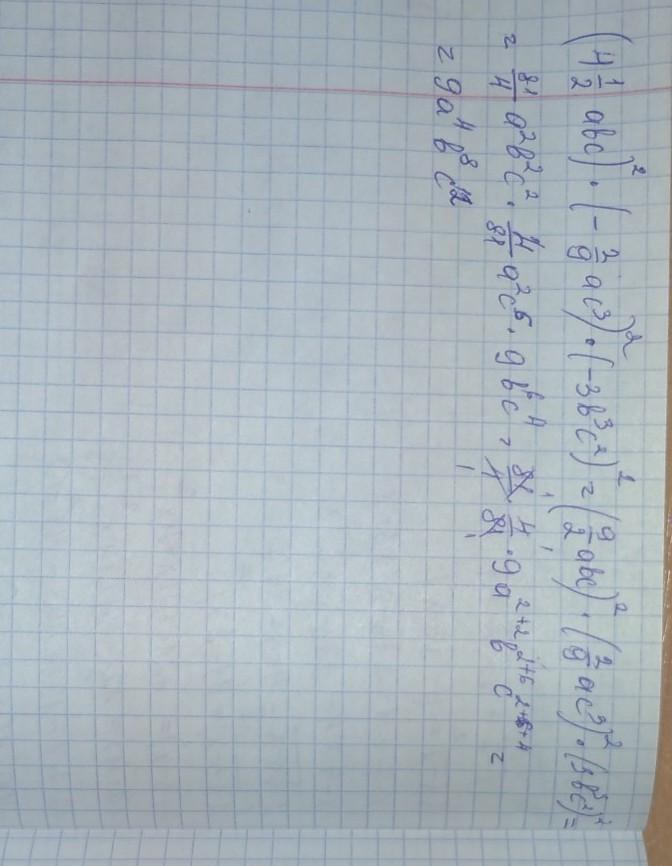 (4 1/2 abc)² · (-2/9 ac³)² · (-3b³c²)² = (9/2 abc)² · (2/9 ac³)² · (3b³c²)² =
= 81/4 a²b²c² · 4/81 a²c⁶ · 9b⁶c⁴ = 81/4 · 4/81 · 9a²⁺²b²⁺⁶c²⁺⁶⁺⁴ =
= 9a⁴b⁸c¹²